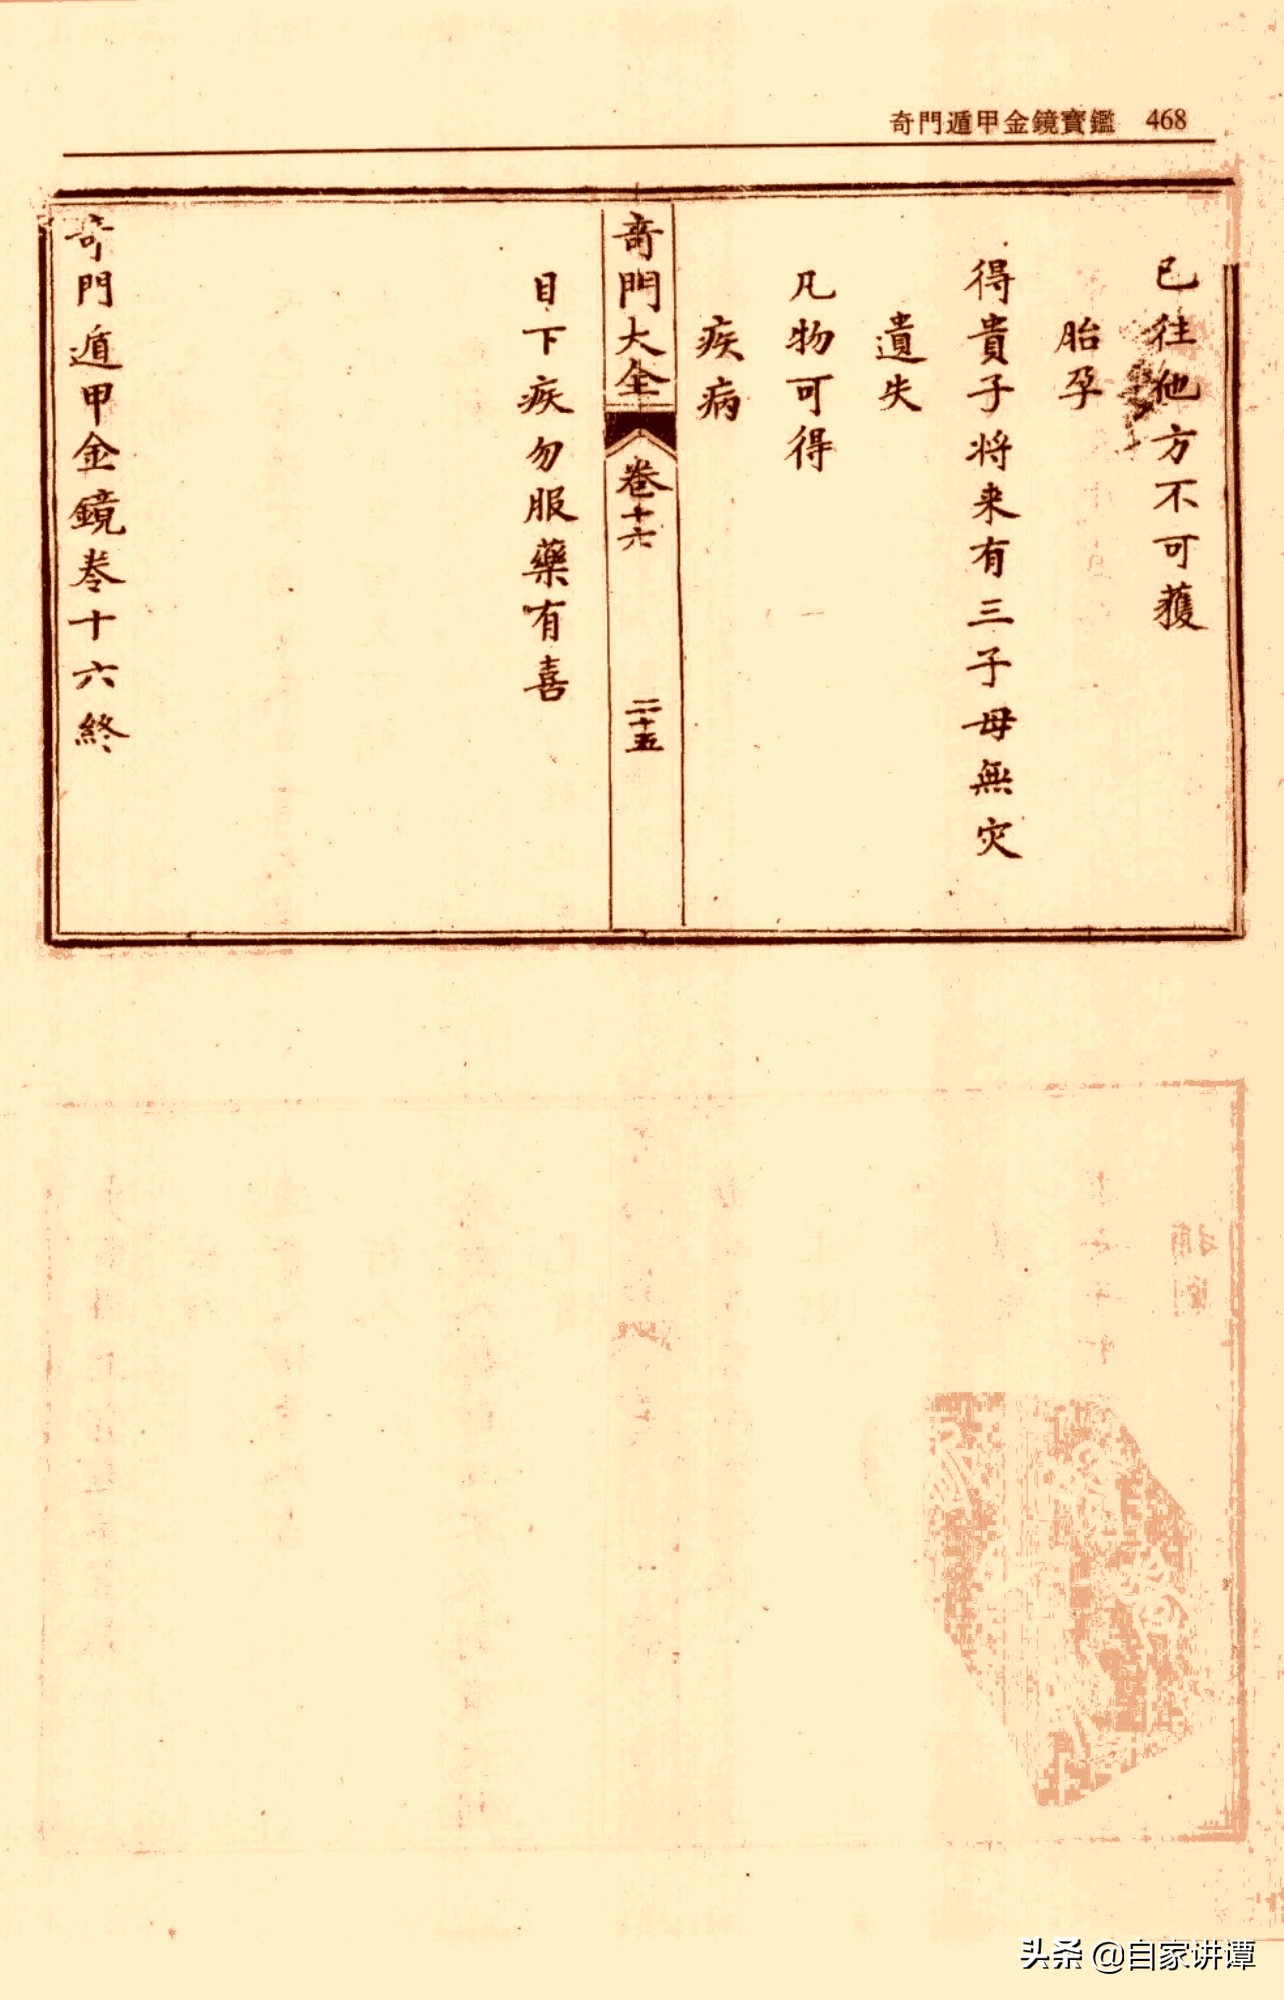 奇門遁甲金鏡寳鑑 468
已往他方不可獲
胎孕
得貴子将来有三子母無灾
遺失
凡物可得
疾病
奇門大全 卷十六 二十五
目下疾勿服藥有喜
奇門遁甲金鏡卷十六終
头条 @自家讲谭